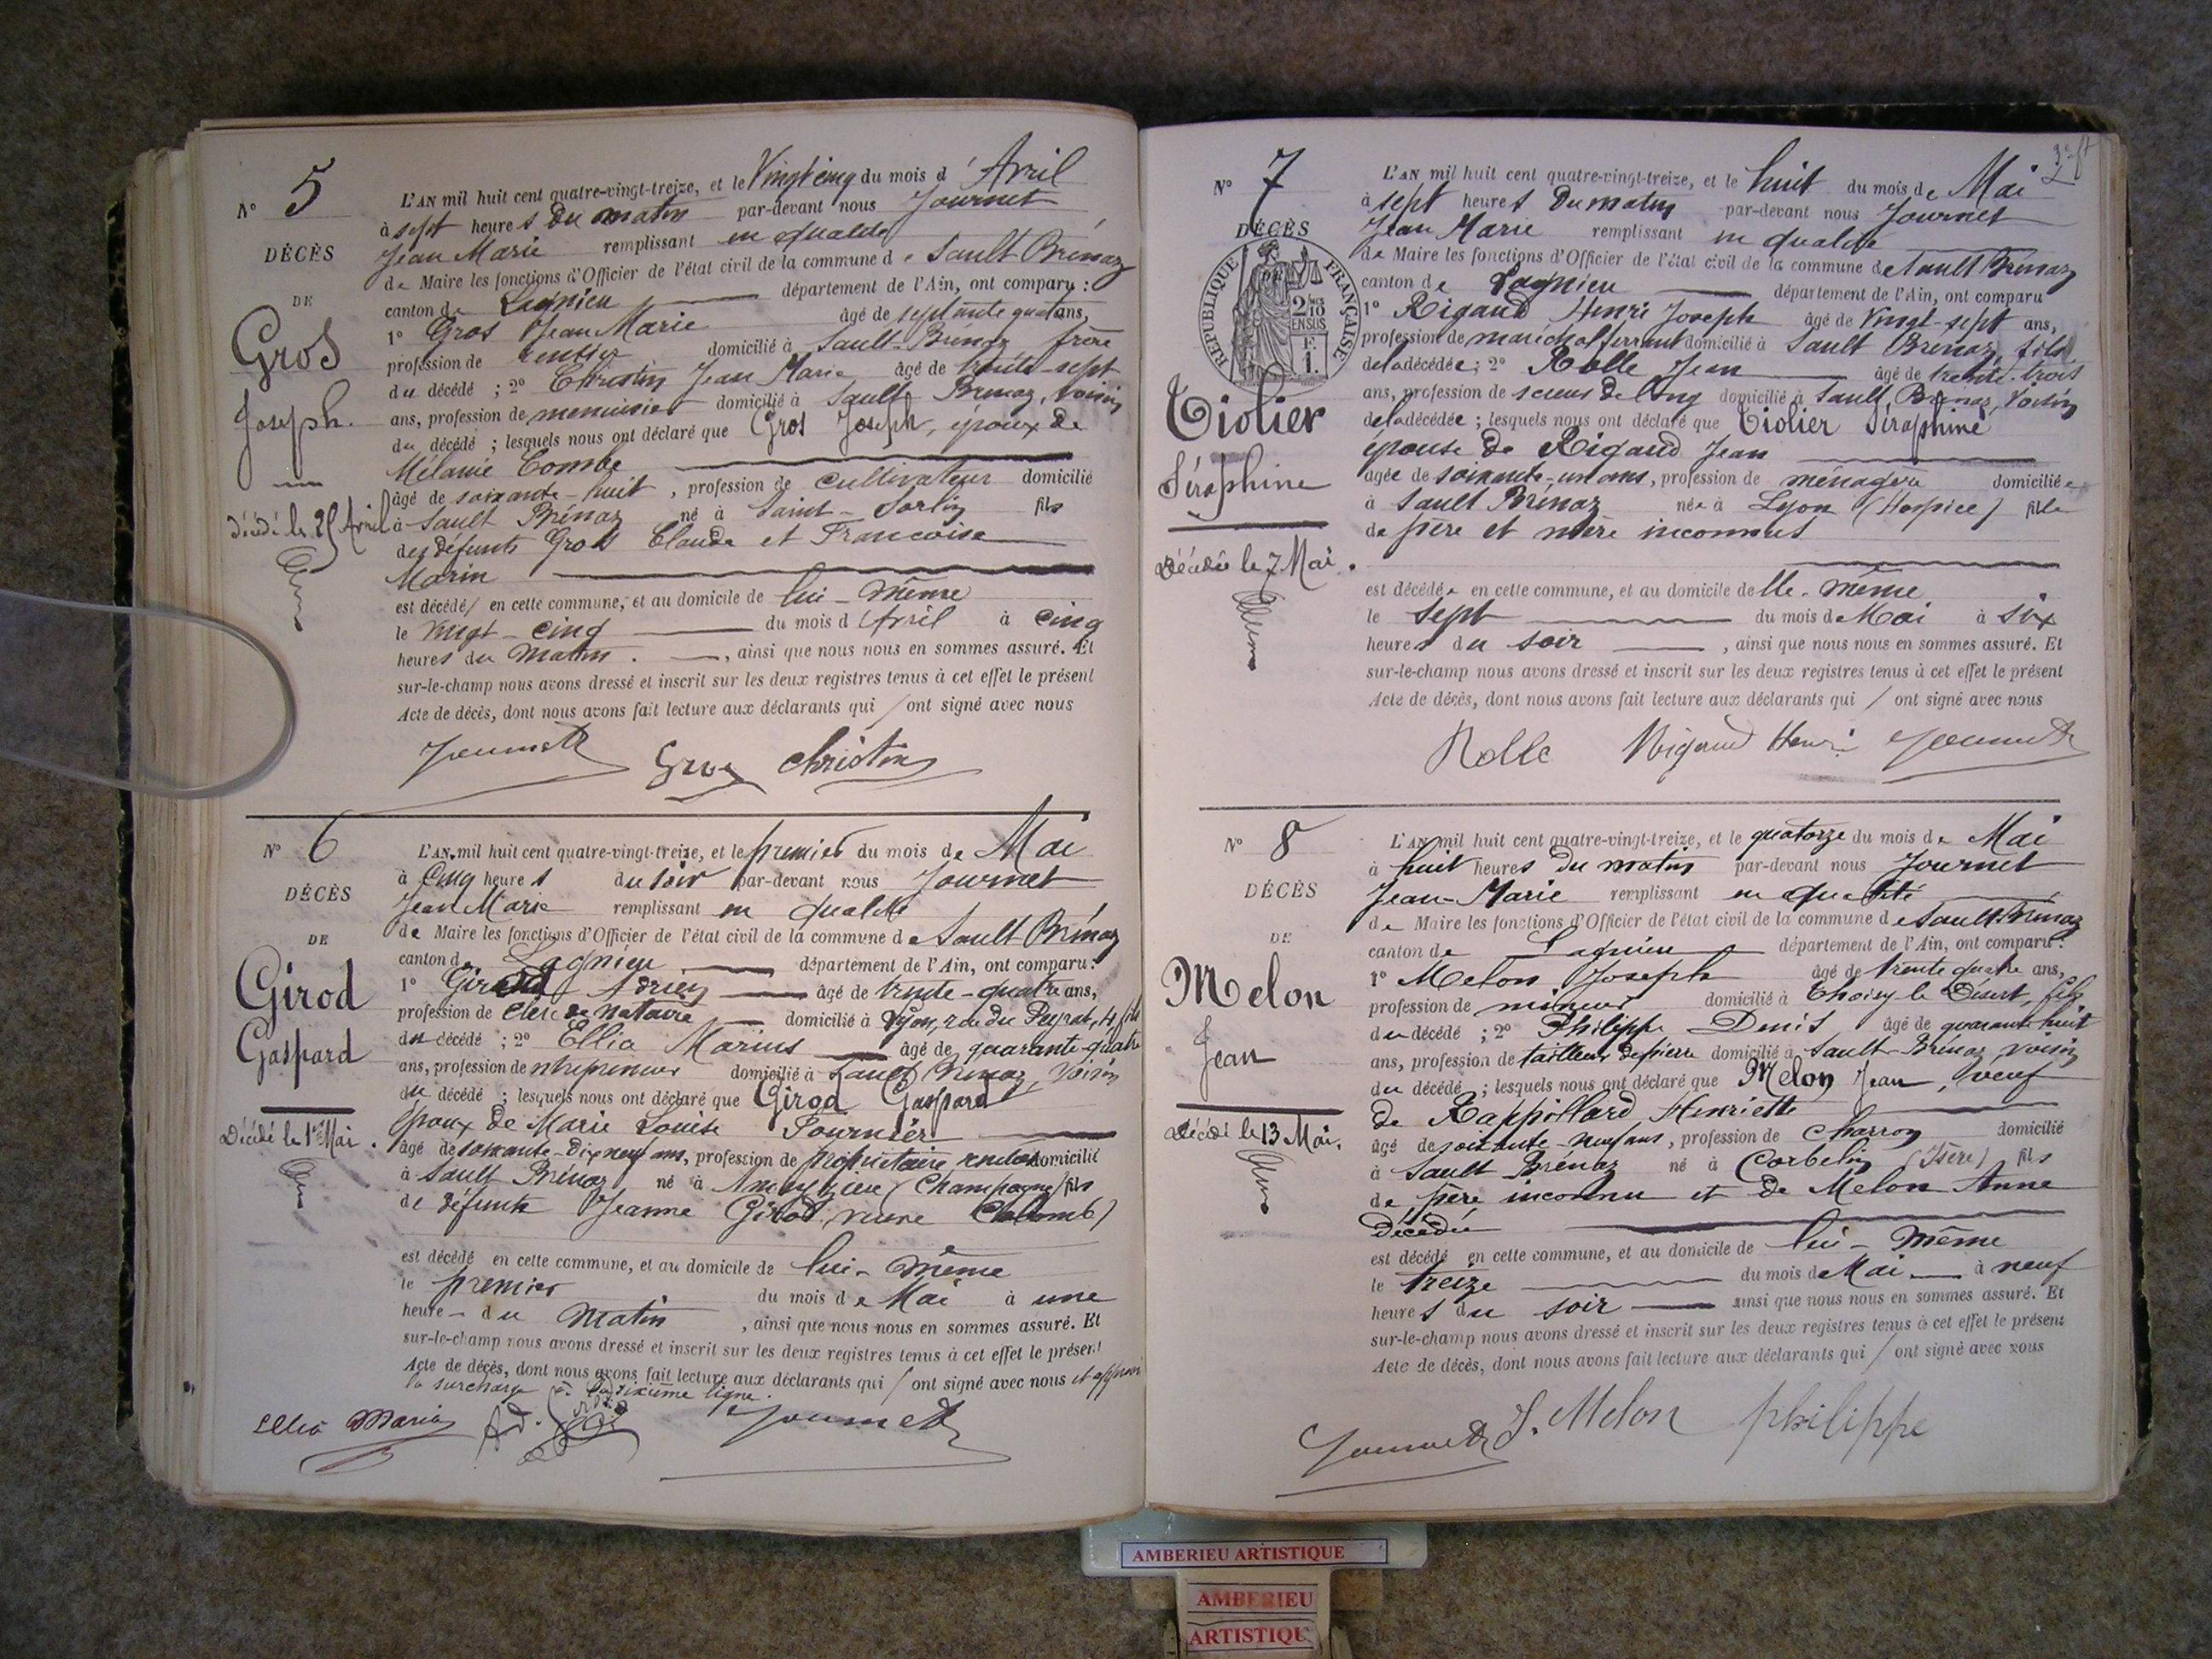 N° 5
DÉCÈS
DE
Gros
Joseph.
Décédé le 25 Avril
L'AN mil huit cent quatre-vingt-treize, et le Vingt cinq du mois d'Avril
à sept heures du matin par-devant nous Journet
Jean Marie remplissant en qualité
de Maire les fonctions d'Officier de l'état civil de la commune de Sault Brénaz
canton de Lagnieu département de l'Ain, ont comparu :
1° Gros Jean Marie âgé de septante quatre ans,
profession de rentier domicilié à Sault-Brénaz frère
du décédé ; 2° Christin Jean Marie âgé de trente-sept
ans, profession de menuisier domicilié à Sault Brénaz, voisin
du décédé ; lesquels nous ont déclaré que Gros Joseph, époux de
Mélanie Combe
âgé de soixante-huit, profession de cultivateur domicilié
à Sault Brénaz né à Saint-Sorlin fils
des défunts Gros Claude et Francoise
Marin
est décédé en cette commune, et au domicile de lui-même
le vingt-cinq du mois d'Avril à cinq
heures du matin. , ainsi que nous nous en sommes assuré. Et
sur-le-champ nous avons dressé et inscrit sur les deux registres tenus à cet effet le présent
Acte de décès, dont nous avons fait lecture aux déclarants qui / ont signé avec nous
Journet Gros Christin
N° 6
DÉCÈS
DE
Girod
Gaspard
Décédé le 1er Mai.
L'AN mil huit cent quatre-vingt-treize, et le premier du mois de Mai
à Cinq heures du soir par-devant nous Journet
Jean Marie remplissant en qualité
de Maire les fonctions d'Officier de l'état civil de la commune de Sault Brénaz
canton de Lagnieu département de l'Ain, ont comparu :
1° Girod Adrien âgé de trente-quatre ans,
profession de clerc de notaire domicilié à Lyon, rue du Peyrat, 4 fils
du décédé ; 2° Ellia Marius âgé de quarante-quatre
ans, profession d'entrepreneur domicilié à Sault Brénaz, voisin
du décédé ; lesquels nous ont déclaré que Girod Gaspard
époux de Marie Louise Fournier
âgé de soixante-dix neuf ans, profession de propriétaire rentier domicilié
à Sault Brénaz né à (Champagne) fils
de défunte Jeanne Girod,
est décédé en cette commune, et au domicile de lui-même
le premier du mois de Mai à une
heure du matin , ainsi que nous nous en sommes assuré. Et
sur-le-champ nous avons dressé et inscrit sur les deux registres tenus à cet effet le présent
Acte de décès, dont nous avons fait lecture aux déclarants qui / ont signé avec nous et approuvé
la surcharge à la sixième ligne.
Ellia Marius Ad. Girod Journet
N° 7
DÉCÈS
RÉPUBLIQUE FRANÇAISE
2/10 EN SUS
F. 1.
Tiolier
Séraphine
Décédée le 7 Mai.
L'AN mil huit cent quatre-vingt-treize, et le huit du mois de Mai
à sept heures du matin par-devant nous Journet
Jean Marie remplissant en qualité
de Maire les fonctions d'Officier de l'état civil de la commune de Sault Brénaz
canton de Lagnieu département de l'Ain, ont comparu
1° Rigaud Henri Joseph âgé de vingt-sept ans,
profession de maréchal ferrant domicilié à Sault Brénaz, fils
de la décédée ; 2° Rolle Jean âgé de trente-trois
ans, profession de scieur de long domicilié à Sault Brénaz, voisin
de la décédée ; lesquels nous ont déclaré que Tiolier Séraphine
épouse de Rigaud Jean
âgée de soixante-un ans, profession de ménagère domiciliée
à Sault Brénaz née à Lyon (Hospice) fille
de père et mère inconnus
est décédée en cette commune, et au domicile d'elle-même
le sept du mois de Mai à six
heures du soir , ainsi que nous nous en sommes assuré. Et
sur-le-champ nous avons dressé et inscrit sur les deux registres tenus à cet effet le présent
Acte de décès, dont nous avons fait lecture aux déclarants qui / ont signé avec nous
Rolle Rigaud Henri Journet
N° 8
DÉCÈS
DE
Melon
Jean
Décédé le 13 Mai.
L'AN mil huit cent quatre-vingt-treize, et le quatorze du mois de Mai
à huit heures du matin par-devant nous Journet
Jean-Marie remplissant en qualité
de Maire les fonctions d'Officier de l'état civil de la commune de Sault-Brénaz
canton de Lagnieu département de l'Ain, ont comparu :
1° Melon Joseph âgé de trente quatre ans,
profession de mineur domicilié à Choisy-le Désert, fils
du décédé ; 2° Philippe Denis âgé de quarante huit
ans, profession de tailleur de pierre domicilié à Sault-Brénaz voisin
du décédé ; lesquels nous ont déclaré que Melon Jean, veuf
de Rappillard Henriette
âgé de soixante-neuf ans, profession de charron domicilié
à Sault Brénaz né à Corbelin (Isère) fils
de père inconnu et de Melon Anne
Décédée
est décédé en cette commune, et au domicile de lui-même
le treize du mois de Mai à neuf
heures du soir ainsi que nous nous en sommes assuré. Et
sur-le-champ nous avons dressé et inscrit sur les deux registres tenus à cet effet le présent
Acte de décès, dont nous avons fait lecture aux déclarants qui / ont signé avec nous
Journet J. Melon Philippe
AMBERIEU ARTISTIQUE
AMBERIEU
ARTISTIQUE